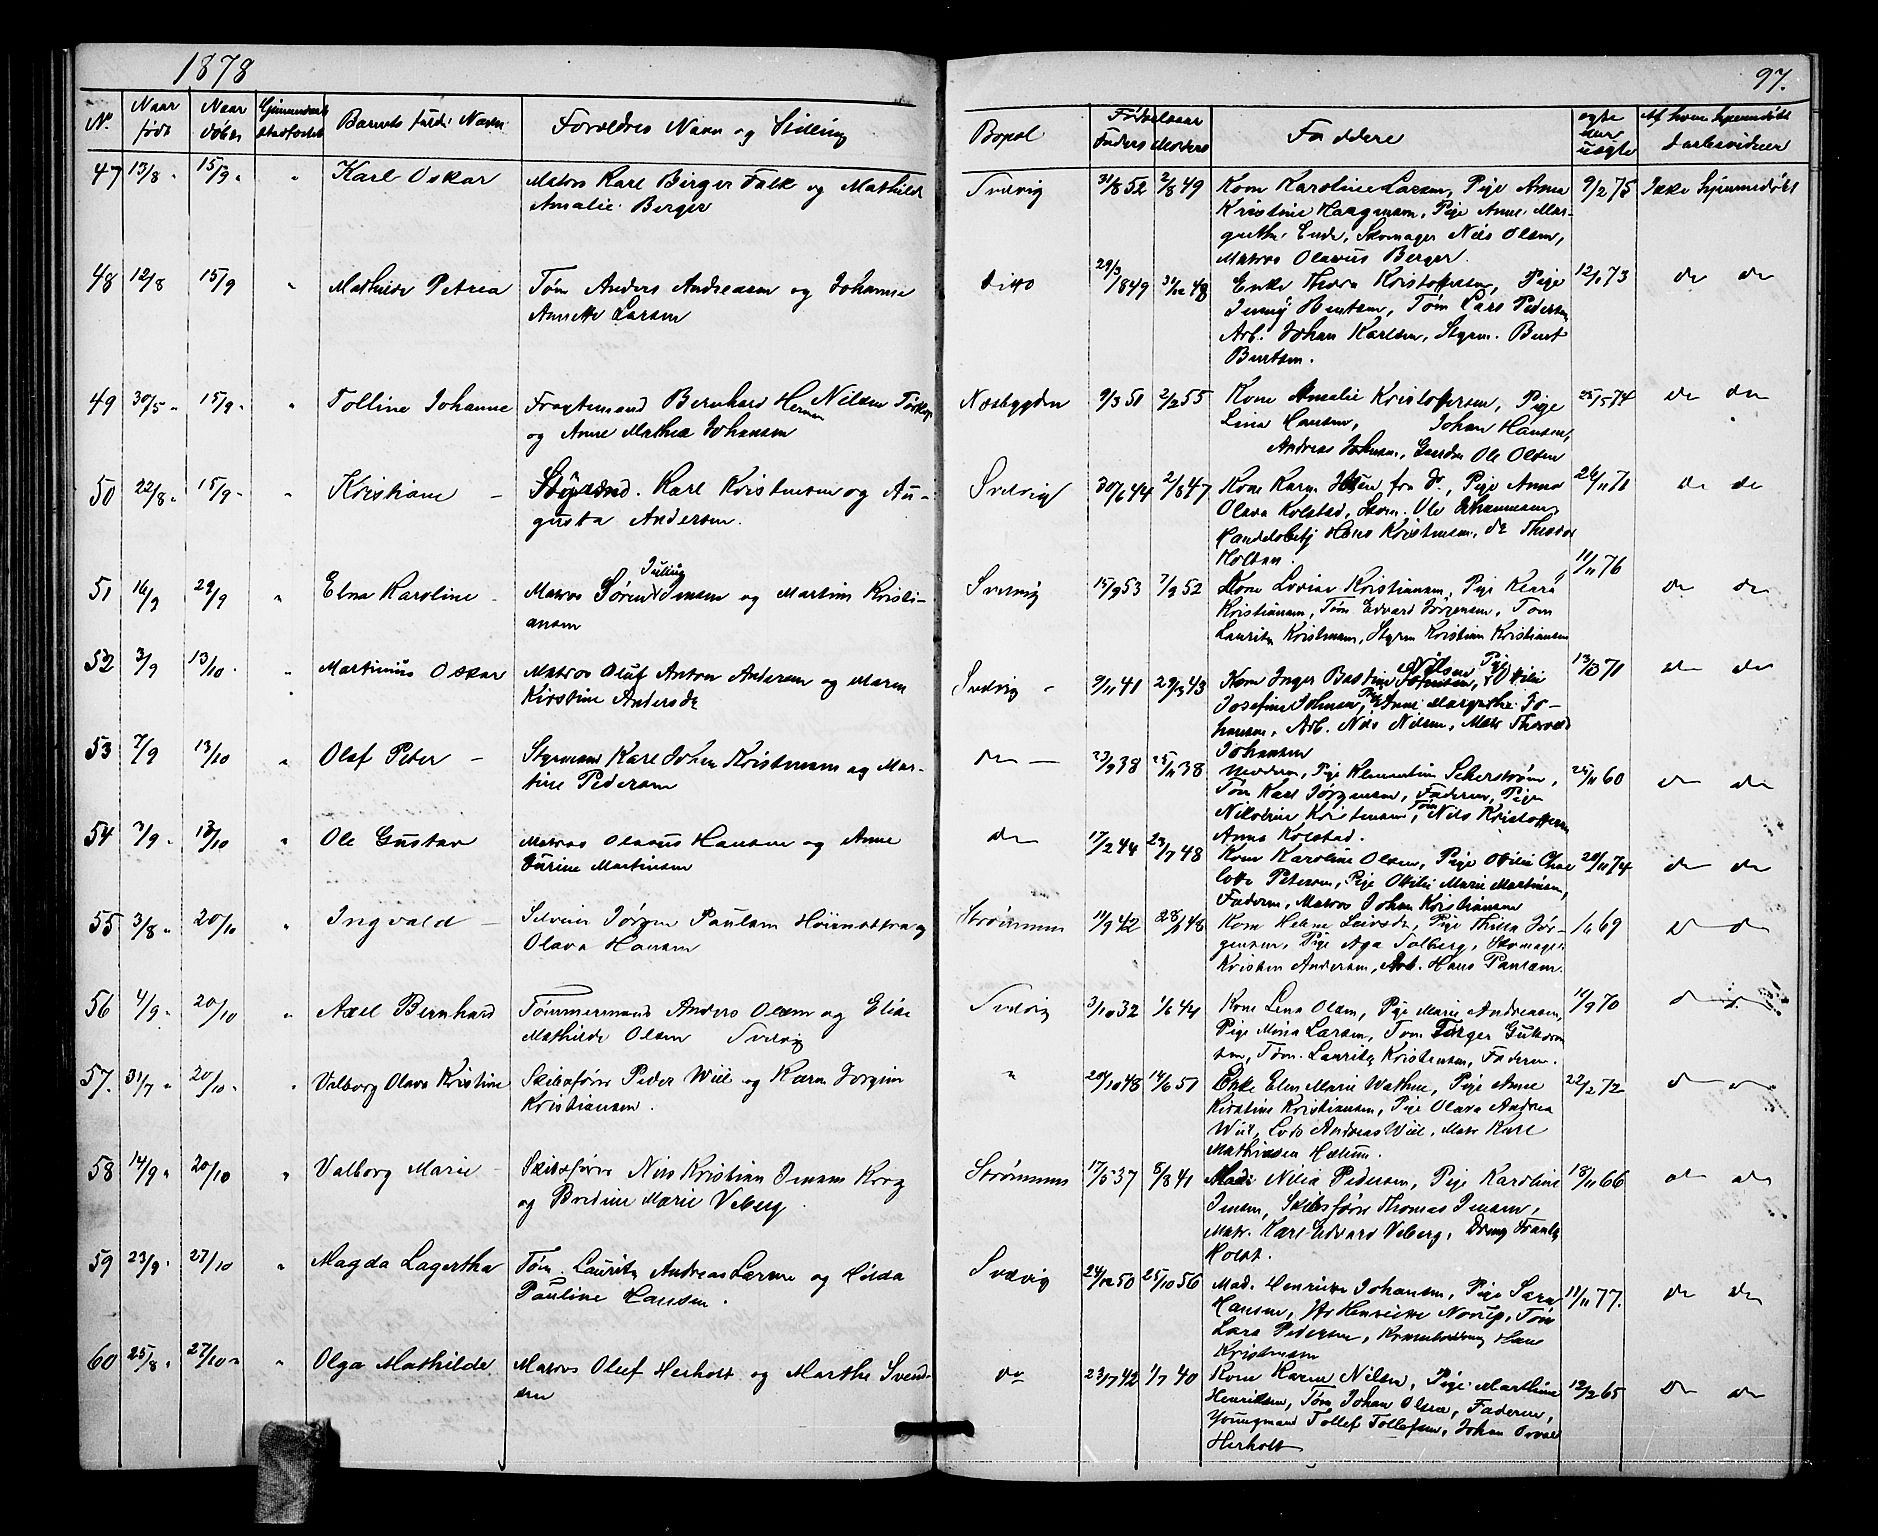 1878
97.
No.
Naar født
Naar døbt
Barnets fulde Navn
Forældres Navn og Stilling
Bopæl
Fødselsaar
Faders
Moders
Faddere
ægte eller uægte
47 13/8 " 15/9 " " Karl Oskar
Matros Karl Birger Falk og Mathilde
Amalie Berger
Svelvig 31/8 52 2/8 49
Kone Karoline Larsen, Pige Anna
Kristine Haagensen, Pige Anne Mar-
grethe Ende, Skomager Nils Olsen,
Matros Olavus Berger.
9/2 75 Ikke hjemmedøbt
48 12/8 15/9 " Mathilde Petrea
Tøm Anders Andreasen og Johanne
Annette Larsen
ditto 29/3 1849 31/12 48
Enke Thora Kristoffersen, Pige
Jenny Bentsen, Tøm Lars Pedersen
Arb. Johan Karlsen, Styrm. Bent
Bentsen.
12/1 73 do do
49 30/5 " 15/9 " " Tolline Johanne
Fragtemand Bernhard Herman Nilsen
og Anne Mathea Johansen
Næsbygden 9/3 51 2/2 55
Kone Amalie Kristoffersen, Pige
Lina Hansen, Johan Hansen,
Andreas Johnsen, Ole Olsen
25/5 74 do do
50 22/8 " 15/9 " " Kristiane —
Styrmd. Karl Kristensen og Au-
gusta Andersen.
Svelvig 30/6 44 2/8 47
Kone Karen Ihsen fra D., Pige Anna
Olava Kolstad, Skom. Ole Johannesen
Handelsbetj Hans Kristensen, do Theodor
Holtan.
26/11 71 do do
51 16/9 29/9 " Elna Karoline —
Matros Søren Julius Jensen og Martine Kristi-
ansen
Svelvig 15/9 53 7/9 52
Kone Lovise Kristiansen, Pige Klara
Kristiansen, Tøm Edvard Jørgensen, Tøm
Lauritz Kristensen, Styrm Kristian Kristiansen
11/11 76 do do
52 3/9 13/10 " " Martinius Oskar
Matros Oluf Anton Andersen og Maren
Kirstine Andersdr
Svelvig — 9/11 41 29/3 43
Kone Inger Bastine Nilsen, Pige Otilie
Josefine Johnsen, Pige Anne Margrethe Jo-
hansen, Arb. Nils Nilsen, Matr Thorvald
Johansen
13/3 71 do do
53 7/9 13/10 " Olaf Peter —
Styrmand Karl Johan Kristensen og Mar-
tine Pedersen
do — 23/9 38 25/11 38
Moderen, Pige Klementine Sekerstrøm,
Tøm Karl Jørgensen, Faderen, Pige
Nikoline Kristensen, Tøm Nils Kristoffersen
Anna Kolstad.
25/11 60 do do
54 7/9 " 13/10 " Ole Gustav
Matros Olavus Hansen og Anne
Turine Martinsen
do 17/2 44 29/7 48
Kone Karoline Olsen, Pige Otilie Char
lotte Petersen, Pige Otilie Marie Martinsen,
Faderen, Matros Johan Kristiansen
20/11 74 do do
55 3/8 " 20/10 " Ingvald —
Selveier Jørgen Paulsen og
Olava Hansen
Strømmen 11/9 42 28/1 48
Kone Helene Leirsdr, Pige Thilla Jør-
gensen, Pige Aga Solberg, Skomager
Kristen Andersen, Arb. Hans Paulsen.
1/6 69 do do
56 4/9 " 20/10 " Axel Bernhard
Tømmermand Anders Olsen og Elise
Mathilde Olsen Svelvig
Svelvig 3/10 32 1/6 44
Kone Lina Olsen, Pige Marie Andreasen,
Pige Mina Larsen, Tøm Torger Guttorm
sen, Tøm. Lauritz Kristensen, Faderen.
14/9 70 do do
57. 31/7 " 20/10 " " Valborg Olava Kristine
Skibsfører Peder Wiil og Karen Jorgine
Kristiansen.
" 20/10 48 14/6 51
Enke Elen Marie Wathne, Pige Anne
Kirstine Kristiansen, Pige Olava Andrea
Wiil, Lods Andreas Wiil, Matr Karl
Mathiasen Hallum.
22/2 72 do do
58 14/9 " 20/10 " Valborg Marie —
Skibsfører Nils Kristian Jensen Krog
og Bredine Marie Veberg.
Strømmen 17/5 37 5/8 41
Mad. Nilia Pedersen, Pige Karoline
Jensen, Skibsfører Thomas Jensen,
Matr. Karl Edvard Veberg, Dreng Frantz
Holst.
18/11 66 do do
59 23/9 " 27/10 " Magda Lagertha
Tøm. Lauritz Andreas Larsen og Hilda
Pauline Hansen.
Svelvig 24/12 50 25/10 56
Mad. Henrikke Johansen, Pige Sara
Hansen, Henrikke Norup, Tøm
Lars Pedersen, Hans
Kristensen
11/11 77. do do
60 25/8 " 27/10 " " Olga Mathilde
Matros Oluf Herholt og Marthe Svend-
sen
do 23/7 42 1/7 40
Kone Karen Nilsen, Pige Marthine
Henriksen, Tøm Johan Olsen, Faderen,
Youngmand Tollef Tollefsen, Johan
Herholt
12/2 65 do do